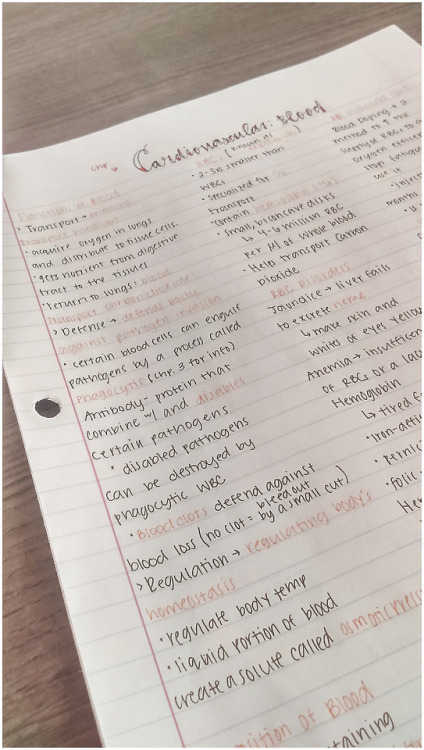 Cardiovascular: Blood
Functions of Blood
› Transport → primary
transport medium
• acquire oxygen in lungs
and distribute to tissue cells.
• gets nutrient from digestive
tract to the tissues
• return to lungs: blood
transport carbon dioxide
› Defense → defends body
against pathogen invasion
• certain blood cells can engulf
pathogens by a process called
phagocytis (chr. 3 for info)
Antibody- protein that
combine w/ and disables
certain pathogens
• disabled pathogens
can be destroyed by
phagocytic WBC
• Blood clots defend against
blood loss (no clot = bleed out by a small cut)
› Regulation → regulating body's
homeostasis
• regulate body temp
• liquid portion of blood
create a solute called osmotic press
(known as
• 2-3x smaller than
WBCs
• specialized for O₂
transport
contain hemoglobin (Hb)
• small, biconcave disks
↳ 4-6 million RBC
per µl of whole blood
• Helps transport carbon
dioxide
RBC Disorders
Jaundice → liver fails
to excrete heme
↳ make skin and
whites of eyes yellow
Anemia → insufficien
of RBCs or a lac
Hemoglobin
↳ tired f
• Iron-defic
• Pernic
• Folic
He
Blood Doping →
method to ↑ the
RBCs to
oxygen efficien
use it
• inject
months
of Blood
taining